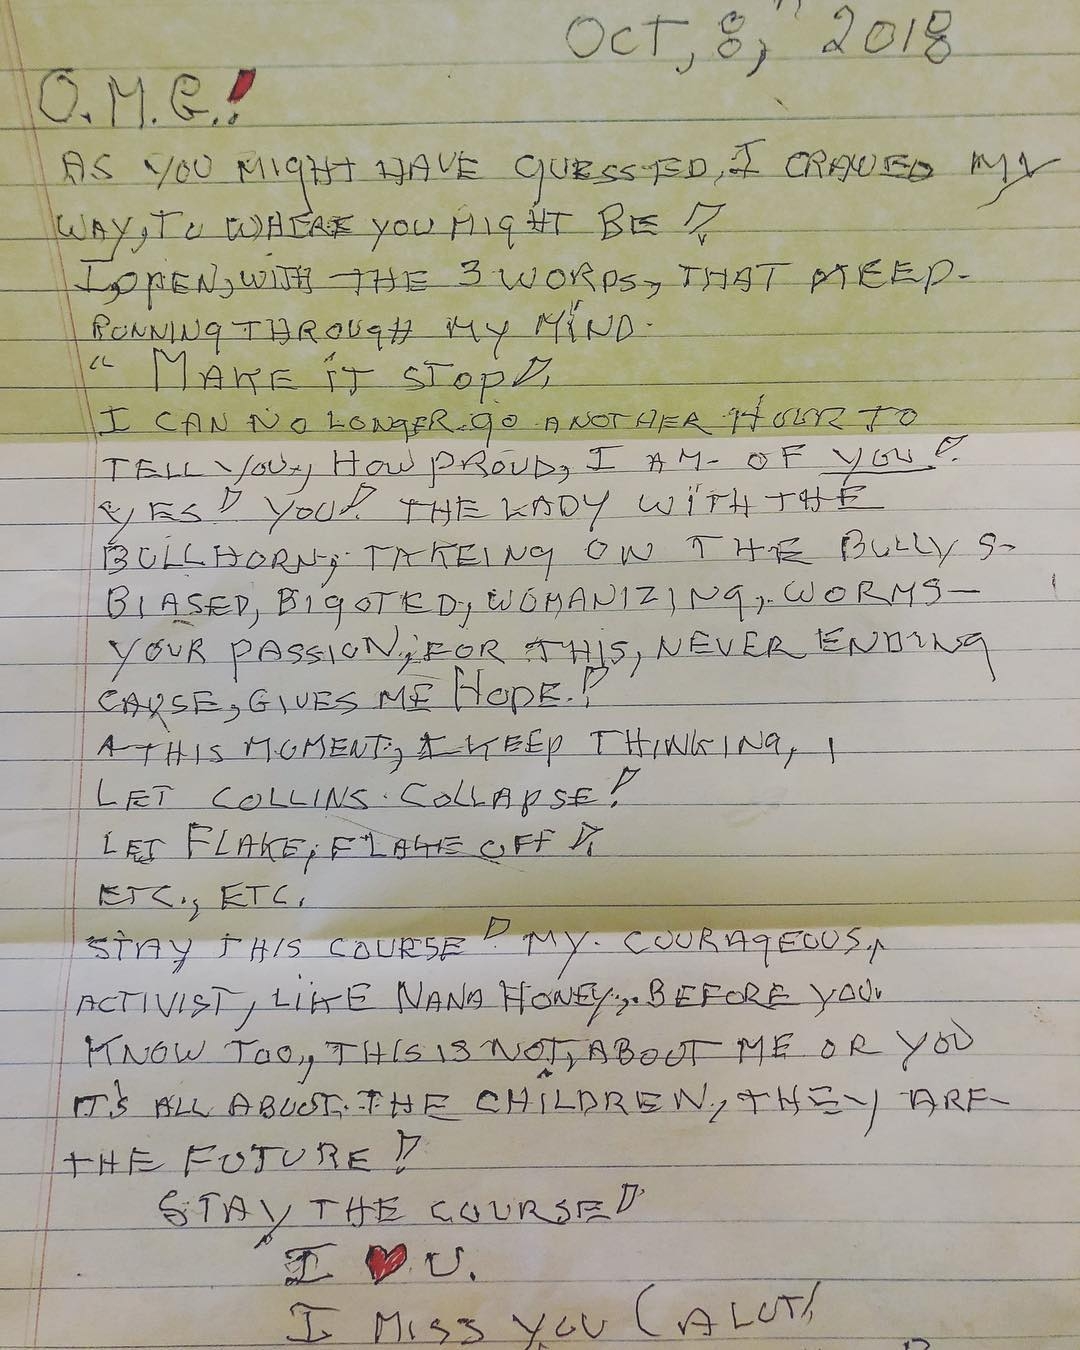 Oct, 8, 2018
O.M.G.!
AS YOU MIGHT HAVE GUESSTED, I CRAWED MY
WAY, TO WHERE YOU MIGHT BE!
I, OPEN, WITH THE 3 WORDS, THAT KEEP-
RUNNING THROUGH MY MIND.
"MAKE IT STOP!,
I CAN NO LONGER GO ANOTHER HOUR TO
TELL YOU, HOW PROUD, I AM- OF YOU!
YES! YOU! THE LADY WITH THE
BULLHORN, TAKEING ON THE BULLYS-
BIASED, BIGOTED, WOMANIZING, WORMS-
YOUR PASSION, FOR THIS, NEVER ENDING
CAUSE, GIVES ME HOPE.!
A THIS MOMENT, I KEEP THINKING,
LET COLLINS. COLLAPSE!
LET FLAKE, FLAKE OFF!
ETC., ETC.
STAY THIS COURSE! MY. COURAGEOUS,
ACTIVIST, LIKE NANA HONEY, BEFORE YOU.
KNOW TOO, THIS IS NOT, ABOUT ME OR YOU
IT'S ALL ABOUT. THE CHILDREN, THEY ARE
THE FUTURE!
STAY THE COURSE!
I ❤ U.
I MISS YOU (ALOT!